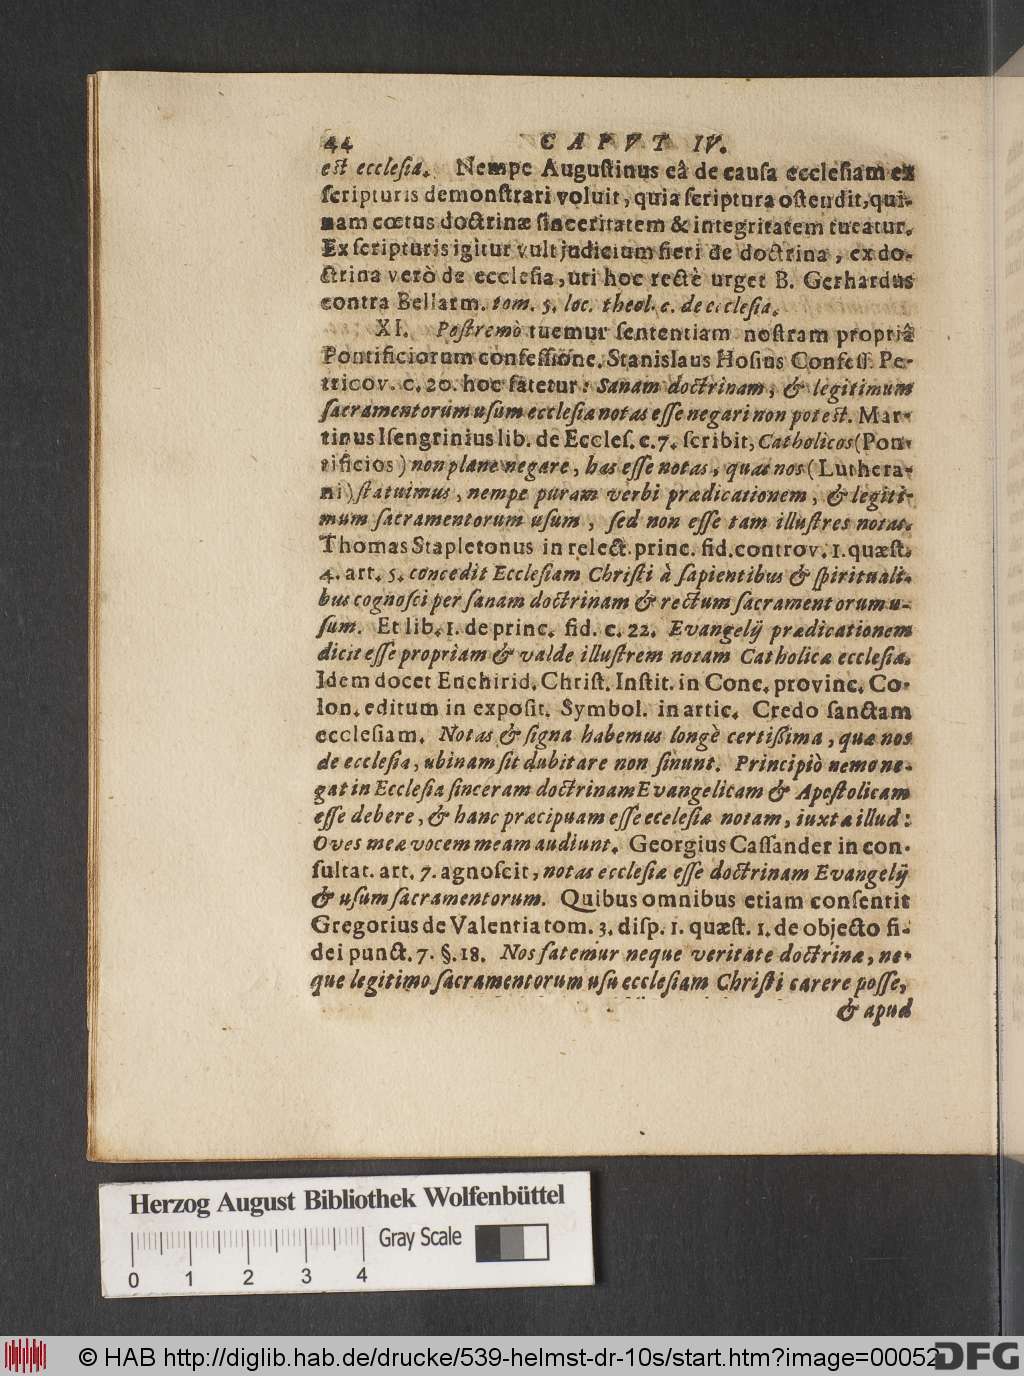 44 CAPVT IV.
est ecclesia. Nempe Augustinus eâ de causa ecclesiam ex
scripturis demonstrari voluit, quia scriptura ostendit, qui-
nam cœtus doctrinæ sinceritatem & integritatem tueatur.
Ex scripturis igitur vult judicium fieri de doctrina, ex do-
ctrina verò de ecclesia, uti hoc rectè urget B. Gerhardus
contra Bellarm. tom. 5. loc. theol. c. de ecclesia.
XI. Postremò tuemur sententiam nostram propriâ
Pontificiorum confessione. Stanislaus Hosius Confess. Pe-
tricov. c. 20. hoc fatetur: Sanam doctrinam, & legitimum
sacramentorum usum ecclesia notas esse negari non potest. Mar-
tinus Isengrinius lib. de Eccles. c. 7. scribit, Catholicos (Pon-
tificios) non plane negare, has esse notas, quas nos (Luthera-
ni) statuimus, nempe puram verbi prædicationem, & legiti-
mum sacramentorum usum, sed non esse tam illustres notas.
Thomas Stapletonus in relect. princ. fid. controv. 1. quæst.
4. art. 5. concedit Ecclesiam Christi à sapientibus & spirituali-
bus cognosci per sanam doctrinam & rectum sacramentorum u-
sum. Et lib. 1. de princ. fid. c. 22. Evangelij prædicationem
dicit esse propriam & valde illustrem notam Catholicæ ecclesiæ.
Idem docet Enchirid. Christ. Instit. in Conc. provinc. Co-
lon. editum in exposit. Symbol. in artic. Credo sanctam
ecclesiam. Notas & signa habemus longè certißima, quæ nos
de ecclesia, ubinam sit dubitare non sinunt. Principiò nemo ne-
gat in Ecclesia sinceram doctrinam Evangelicam & Apostolicam
esse debere, & hanc præcipuam esse ecclesiæ notam, iuxta illud:
Oves meæ vocem meam audiunt. Georgius Cassander in con-
sultat. art. 7. agnoscit, notas ecclesiæ esse doctrinam Evangelij
& usum sacramentorum. Quibus omnibus etiam consentit
Gregorius de Valentia tom. 3. disp. 1. quæst. 1. de objecto fi-
dei punct. 7. §. 18. Nos fatemur neque veritate doctrinæ, ne-
que legitimo sacramentorum usu ecclesiam Christi carere posse,
& apud
Herzog August Bibliothek Wolfenbüttel
Gray Scale
0 1 2 3 4
© HAB http://diglib.hab.de/drucke/539-helmst-dr-10s/start.htm?image=00052
DFG